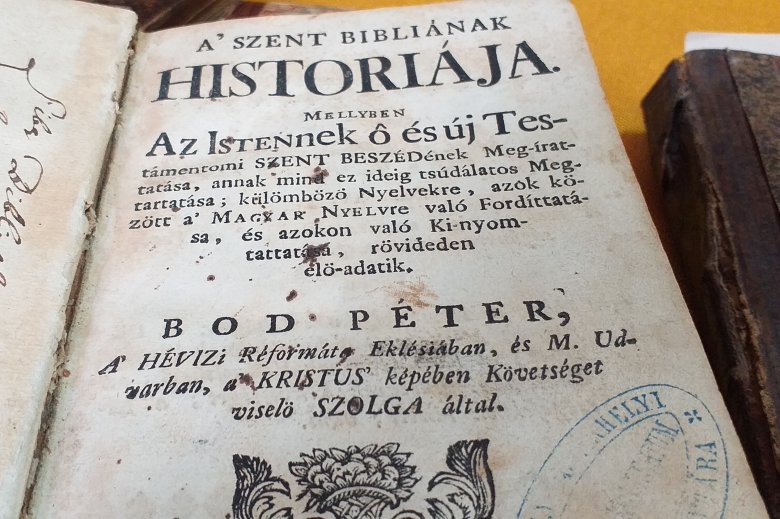 A' SZENT BIBLIÁNAK
HISTORIÁJA.
MELLYBEN
AZ ISTENnek ô és új Tes-
támentomi SZENT BESZÉDének Meg-írat-
tatása, annak mind ez ideig tsúdálatos Meg-
tartatása; külömbözö Nyelvekre, azok kö-
zött a' MAGYAR NYELvre való Fordíttatá-
sa, és azokon való Ki-nyom-
tattatása, rövideden
élö-adatik.
BOD PÉTER,
A' HÉVIZi Réformáta Eklésiában, és M. Ud-
varban, a' KRISTUS' képében Követséget
viselö SZOLGA által.